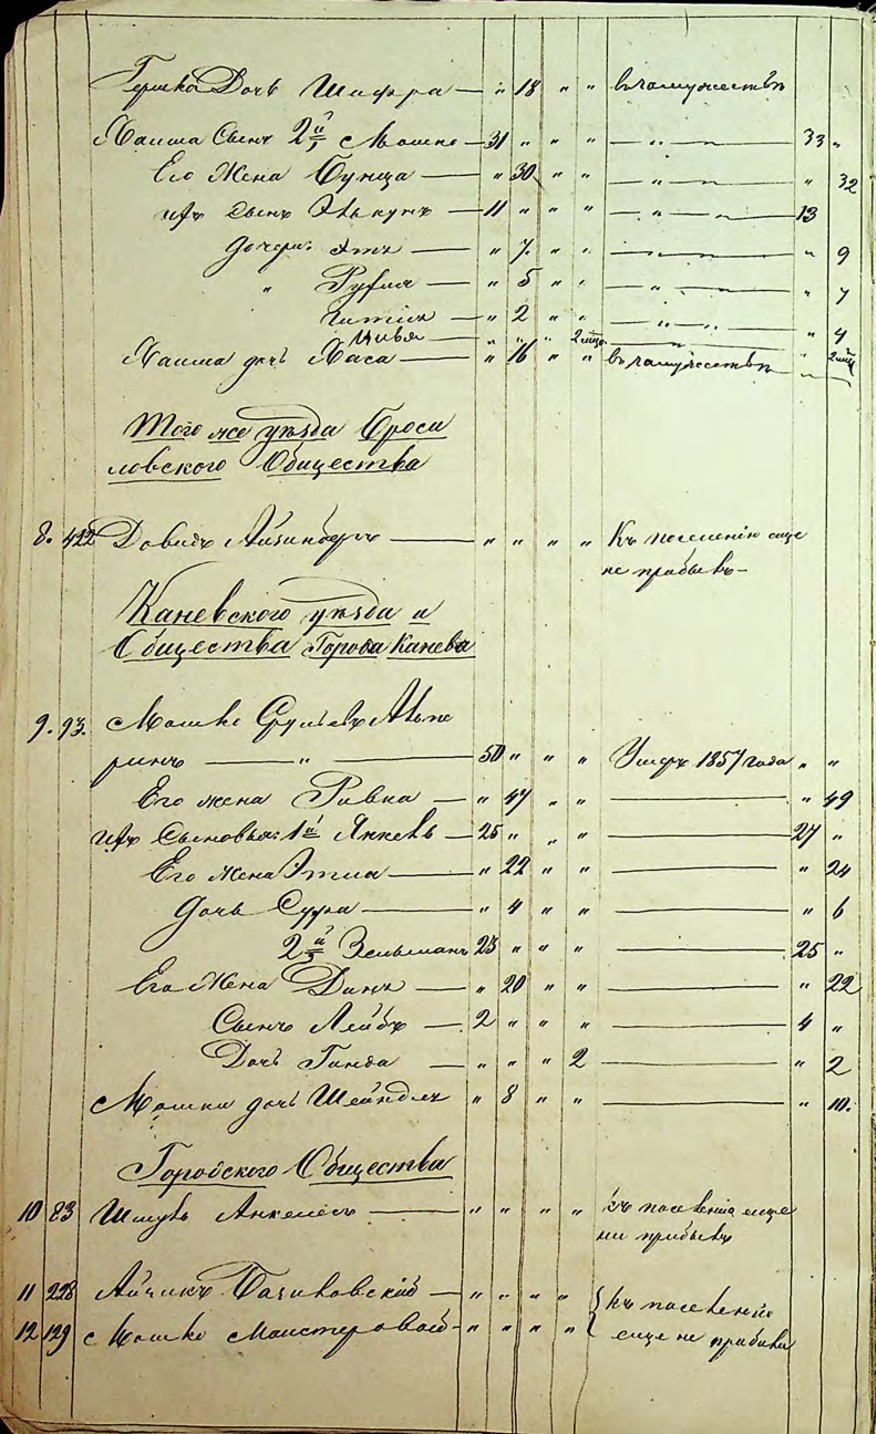 Гершка Дочь Шифра — " 18 " " въ замужествѣ
Хаима Сынъ 2й Мошко — 31 " " " — " — 33 "
Его Жена Бунца — " 30 " " — " — " 32
ихъ Сынъ Элькунъ — 11 " " " — " — 13
дочери: Этя — " 7 " " — " 9
" Рухля — " 5 " " — " — " 7
" 2 " " — " — " 4
Цивья — " " " 2 мѣс. — "
Хаима дочь Хаса — " 16 " " въ замужествѣ " 2
Того же уѣзда Бруси
ловского Общества
8. 422 Довидъ — " " " " Къ поселенію еще
не прибылъ —
Каневского уѣзда и
Общества Города Канева
9. 93. Мошко Сруліовъ Альпе
ринъ — " — 50 " " " Умеръ 1857 года " "
Его жена Ривка — " 47 " " — " 49
ихъ Сыновья: 1й Янкель — 25 " " " — 27 "
Его Жена Этля — " 22 " " — " 24
Дочь Сура — " 4 " " — " 6
2й Зельманъ 23 " " " — 25 "
Его Жена Дина — " 20 " " — " 22
Сынъ Лейбъ — 2 " " " — 4 "
Дочь Гинда — " " " 2 — " 2
Мошки дочь Шейндля " 8 " " — " 10.
Городского Общества
10 83 Шмуль — " " " " къ поселенію еще
не прибылъ
11 228 Айзикъ — " " " " къ поселенію
12 129 Мошко Маистеровой — " " " " еще не прибыли